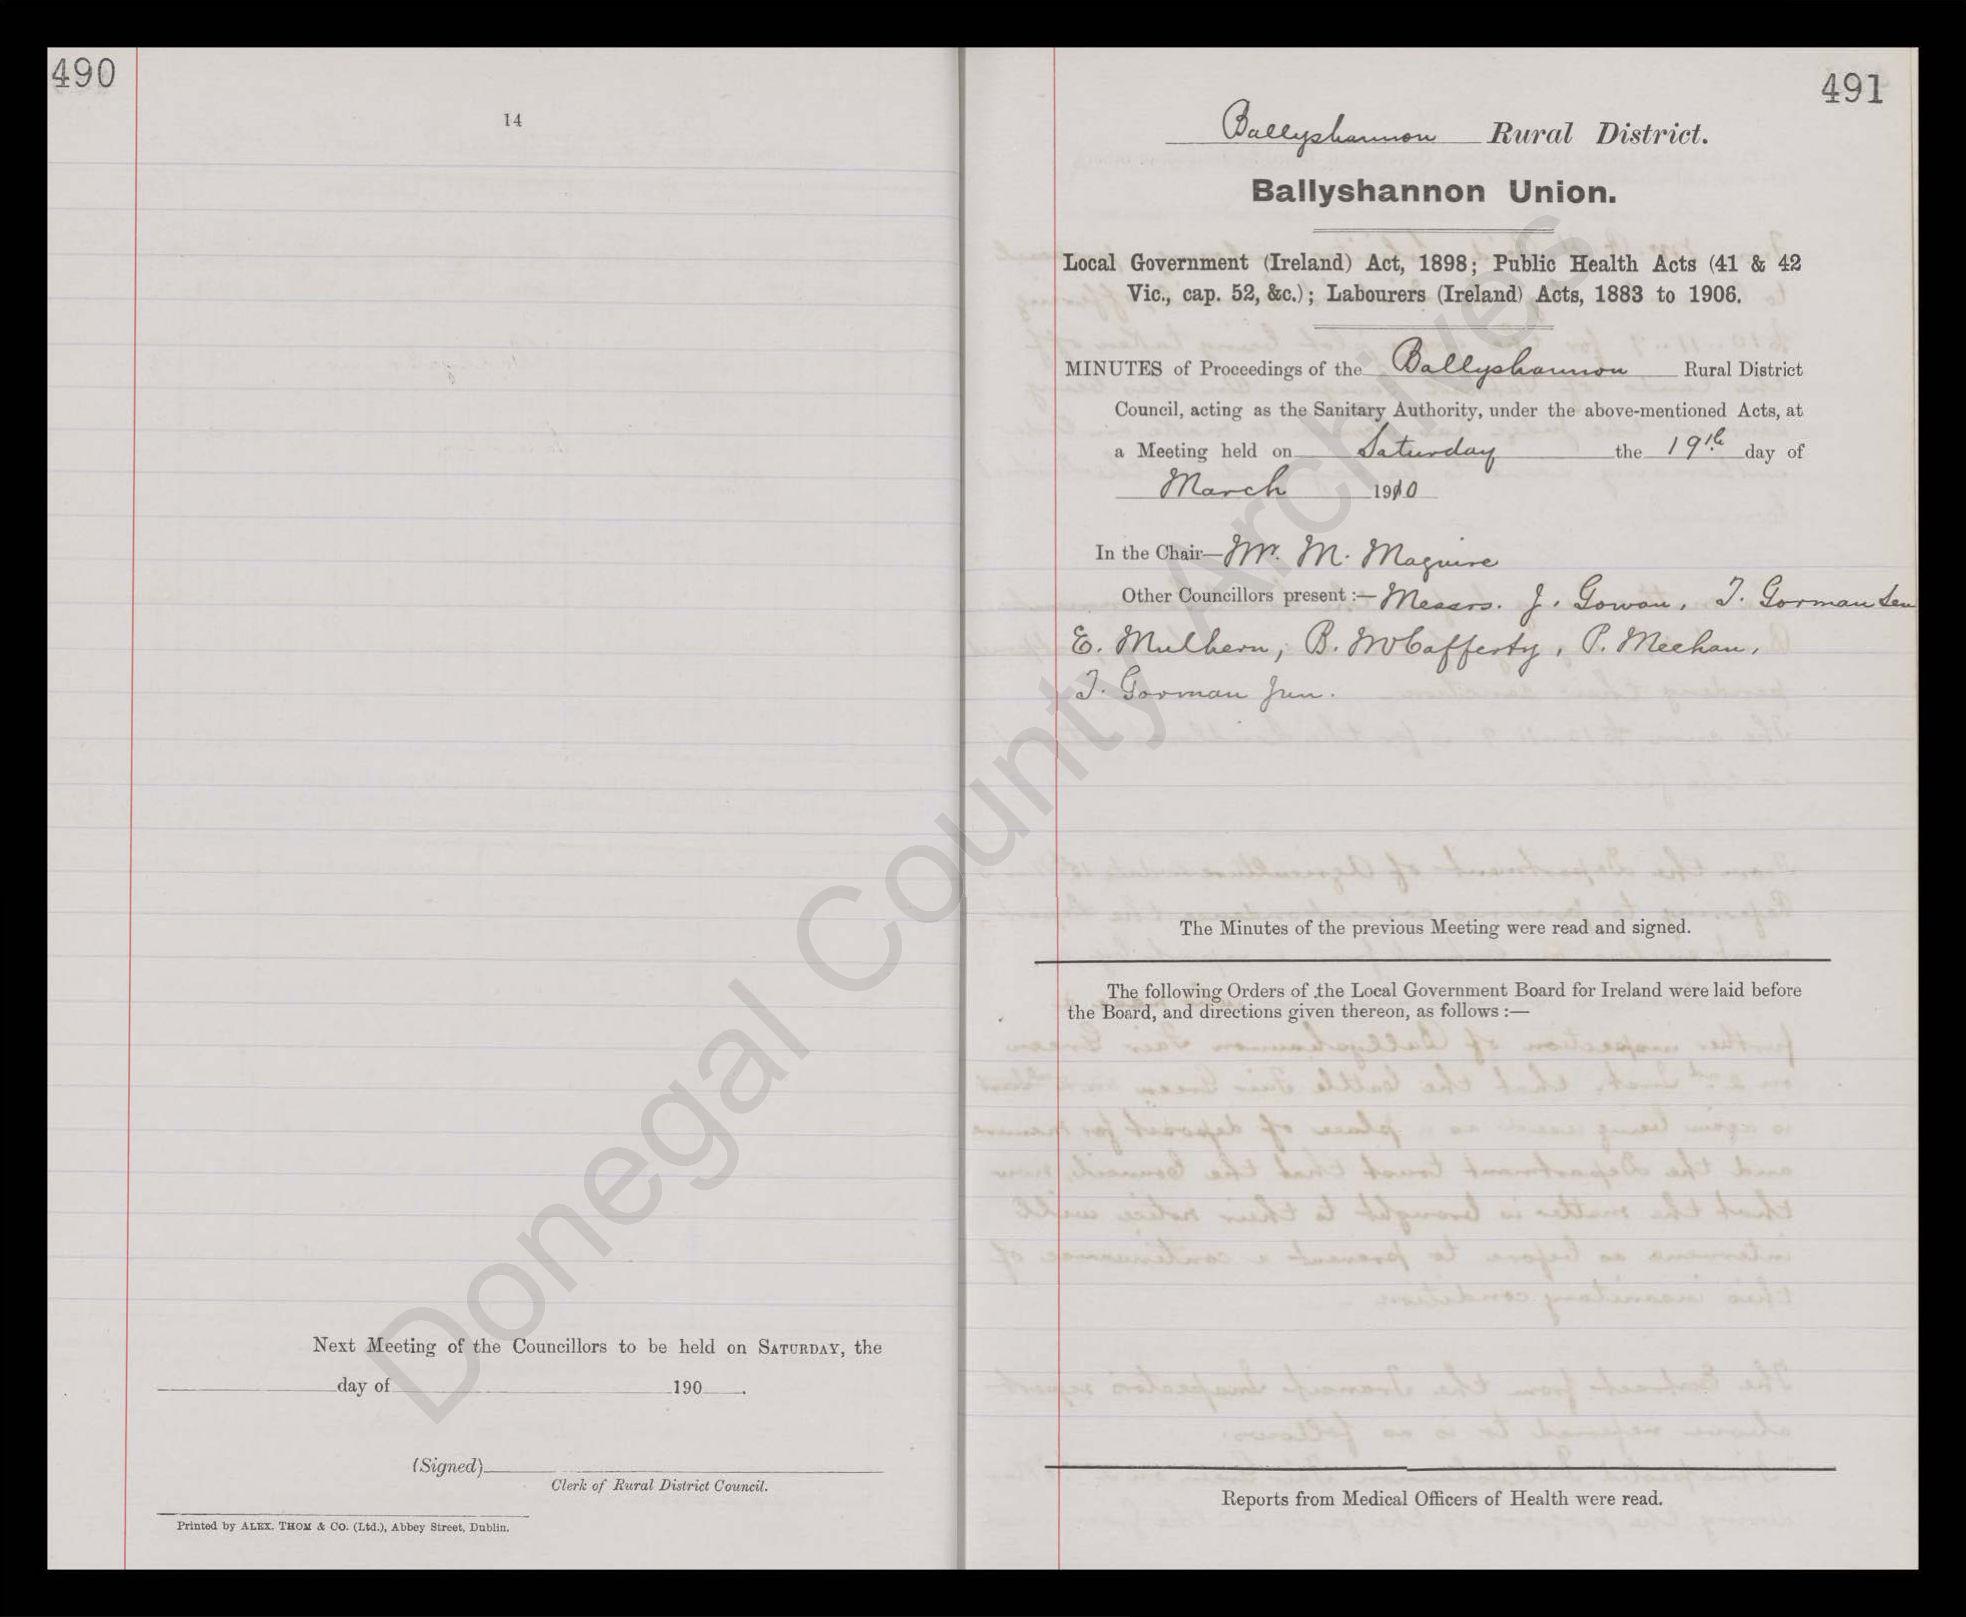 490
14
Next Meeting of the Councillors to be held on SATURDAY, the
day of 190 .
(Signed)
Clerk of Rural District Council.
Printed by ALEX. THOM & CO. (Ltd.), Abbey Street, Dublin.
491
Ballyshannon Rural District.
Ballyshannon Union.
Local Government (Ireland) Act, 1898; Public Health Acts (41 & 42
Vic., cap. 52, &c.); Labourers (Ireland) Acts, 1883 to 1906.
MINUTES of Proceedings of the Ballyshannon Rural District
Council, acting as the Sanitary Authority, under the above-mentioned Acts, at
a Meeting held on Saturday the 19th day of
March 1910
In the Chair—Mr. M. Maguire
Other Councillors present :— Messrs. J. Gowan, T. Gorman Sen
E. Mulhern, B. McCafferty, P. Meehan,
T. Gorman Jun.
The Minutes of the previous Meeting were read and signed.
The following Orders of the Local Government Board for Ireland were laid before
the Board, and directions given thereon, as follows :—
Reports from Medical Officers of Health were read.
Donegal County Archives